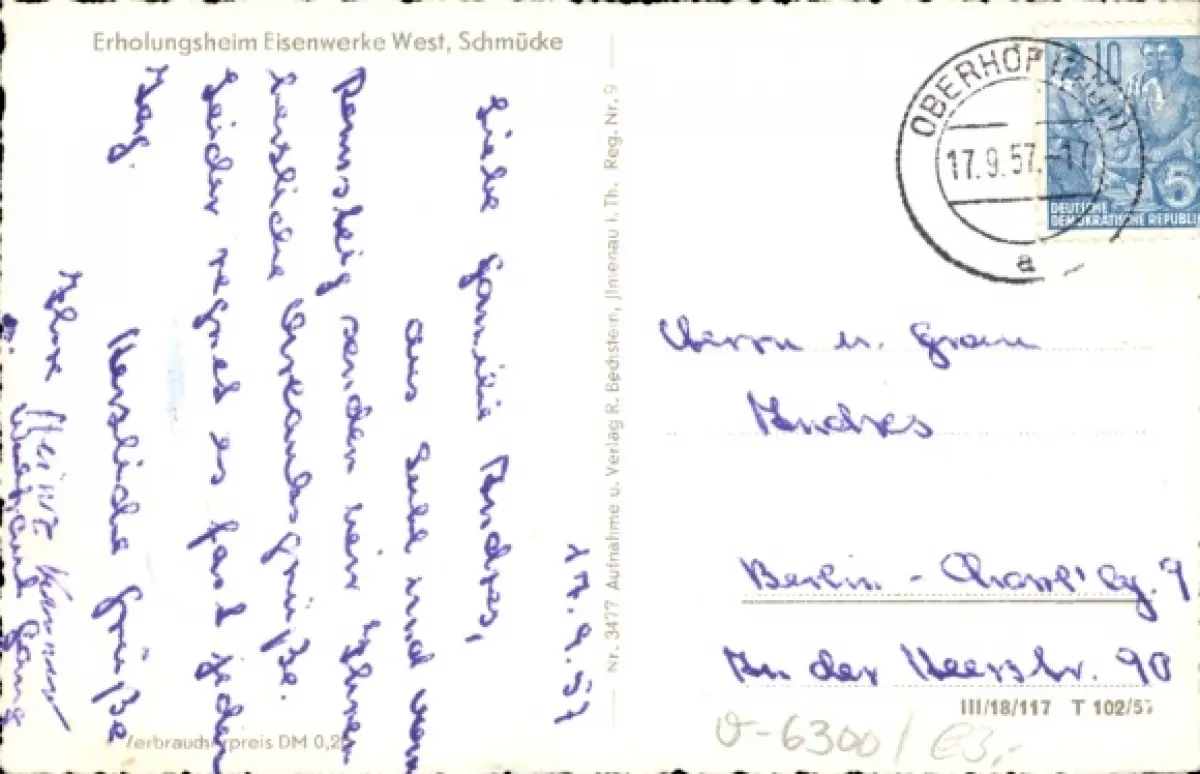 Erholungsheim Eisenwerke West, Schmücke
17.9.57
Liebe Familie Andres,
aus Suhl und vom
Rennsteig senden wir Ihnen
herzliche Urlaubsgrüße.
Leider regnet es fast jeden
Tag.
Herzliche Grüße
Ihre Heinz
u. Waltraud
Verbraucherpreis DM 0,2
Nr. 3477 Aufnahme u. Verlag R. Bechstein, Ilmenau i. Th. Reg.-Nr. 9
OBERHOF (THÜR)
17.9.57.-17
a
10
5
DEUTSCHE
DEMOKRATISCHE REPUBLIK
Herrn u. Frau
Andres
Berlin - Charl'bg. 9
An der Heerstr. 90
III/18/117 T 102/57
6300/ €3,-